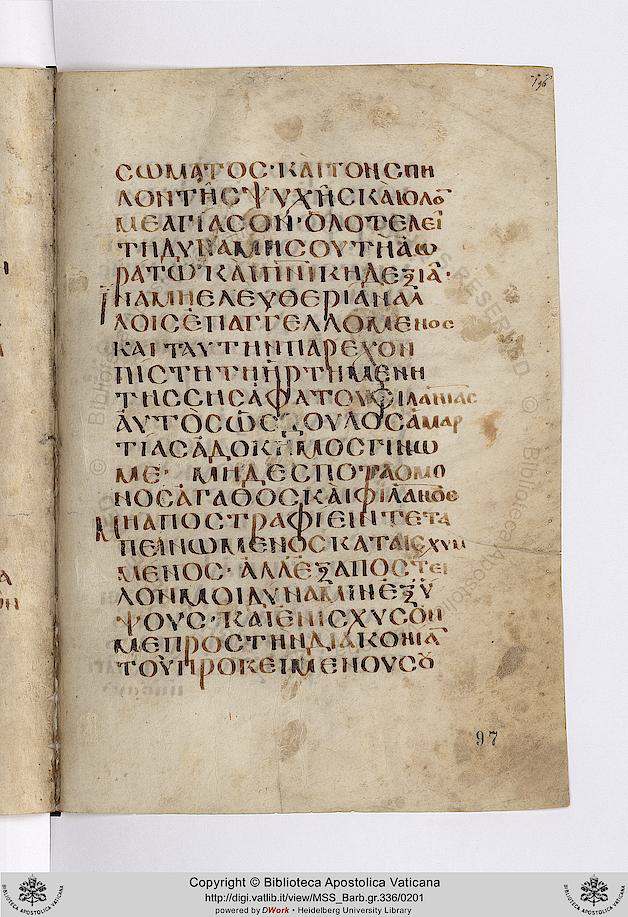 196
ϹΩΜΑΤΟϹ·ΚΑΙΤΟΝϹΠΗ
ΛΟΝΤΗϹΨΥΧΗϹΚΑΙΟΛΟ
ΜΕΑΓΙΑϹΟΝ·ΟΛΟΤΕΛΕΙ
ΤΗΔΥΝΑΜΗϹΟΥΤΗΑΩ
ΡΑΤΩ·ΚΑΙΠΝΙΚΗΔΕΞΙΑ·
ΙΝΑΜΗΕΛΕΥΘΕΡΙΑΝΑΛ
ΛΟΙϹΕΠΑΓΓΕΛΛΟΜΕΝΟϹ
ΚΑΙΤΑΥΤΗΝΠΑΡΕΧΟΝ
ΠΙϹΤΗΤΗΗΡΤΗΜΕΝΗ
ΤΗϹϹΗϹΑΦΑΤΟΥΦΙΛΑΝΙΑϹ
ΑΥΤΟϹΩϹΔΟΥΛΟϹΑΜΑΡ
ΤΙΑϹΑΔΟΚΗΜΟϹΓΙΝΩ
ΜΕ· ΜΗΔΕϹΠΟΤΑΟΜΟ
ΝΟϹΑΓΑΘΟϹΚΑΙΦΙΛΑΝΟϹ
ΜΗΑΠΟϹΤΡΑΦΙΕΙΗΤΕΤΑ
ΠΕΙΝΩΜΕΝΟϹΚΑΤΑΙϹΧΥΜ
ΜΕΝΟϹ·ΑΛΛΕΞΑΠΟϹΤΕΙ
ΛΟΝΜΟΙΔΥΝΑΜΙΝΕΞΥ
ΨΟΥϹ·ΚΑΙΕΝΙϹΧΥϹΟΝ
ΜΕΠΡΟϹΤΗΝΔΙΑΚΟΝΙΑ
ΤΟΥΠΡΟΚΕΙΜΕΝΟΥϹΟΥ
97
Copyright © Biblioteca Apostolica Vaticana
http://digi.vatlib.it/view/MSS_Barb.gr.336/0201
powered by DWork • Heidelberg University Library